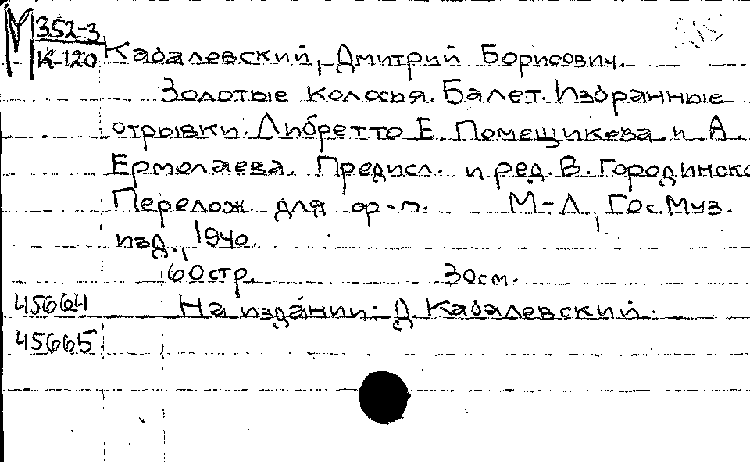 М 352-3
К-120 Кабалевский, Дмитрий Борисович.
Золотые колосья. Балет. Избранные
отрывки. Либретто Е. Помещикева и А.
Ермолаева. Предисл. и ред. В. Городинско
Перелож для ф-п. М-Л, Гос. Муз.
изд., 1940.
60 стр. 30 см.
45664 На издании: Д. Кабалевский.
45665